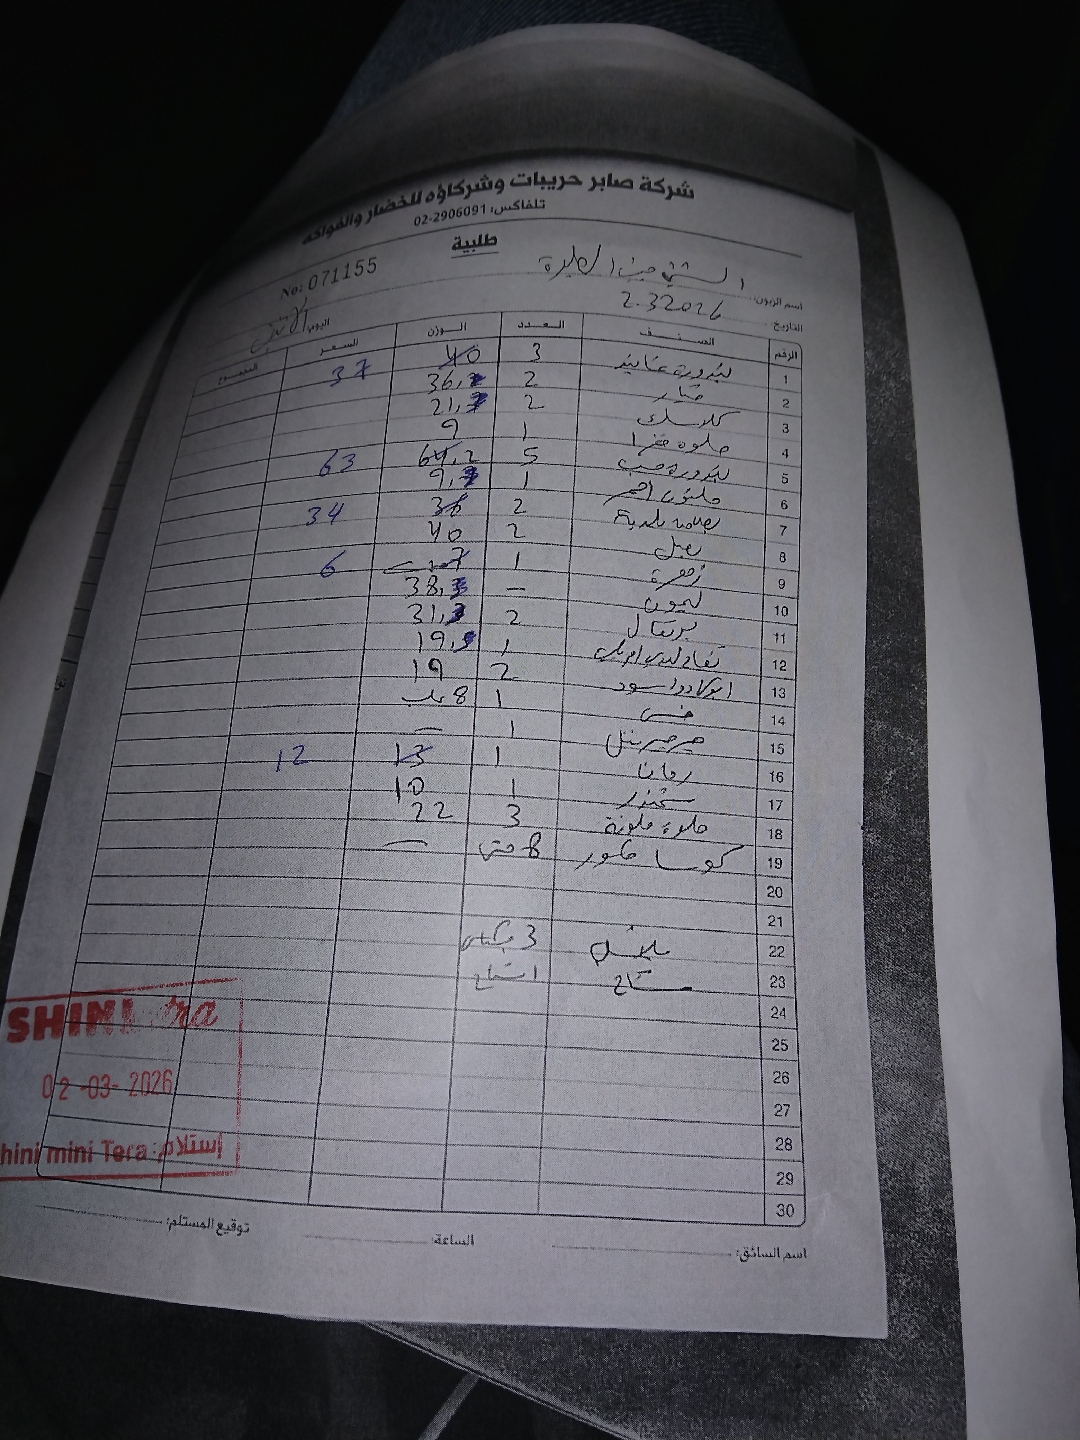 شركة صابر حريبات وشركاؤه للخضار والفواكه
تلفاكس: 02-2906091
طلبية
No: 071155
اسم الزبون:
التاريخ: 2.3.2026 اليوم: الاثنين
الرقم الصنف العدد الوزن السعر المجموع
1 بندورة عناقيد 3 40 37
2 خيار 2 36,2
3 كلاسك 2 21,7
4 حلوة خضرا 1 9
5 بندورة حب 5 64,2 63
6 1 9,
7 بطاطا بلدية 2 36 34
8 بصل 2 40
9 زهرة 1 7 6
10 ليمون - 38,3
11 برتقال 2 31,3
12 تفاح 1 19,5
13 افوكادو اسود 2 19
14 خس 1 8
15 جرجير 1 -
16 رمان 1 13 12
17 شمندر 1 10
18 حلوة ملونة 3 22
19 كوسا حفور 8 -
20
21
22 3
23
24
25
26
27
28
29
30
SHINI
02-03-2026
shini mini Tera استلام:
اسم السائق: الساعة: توقيع المستلم: